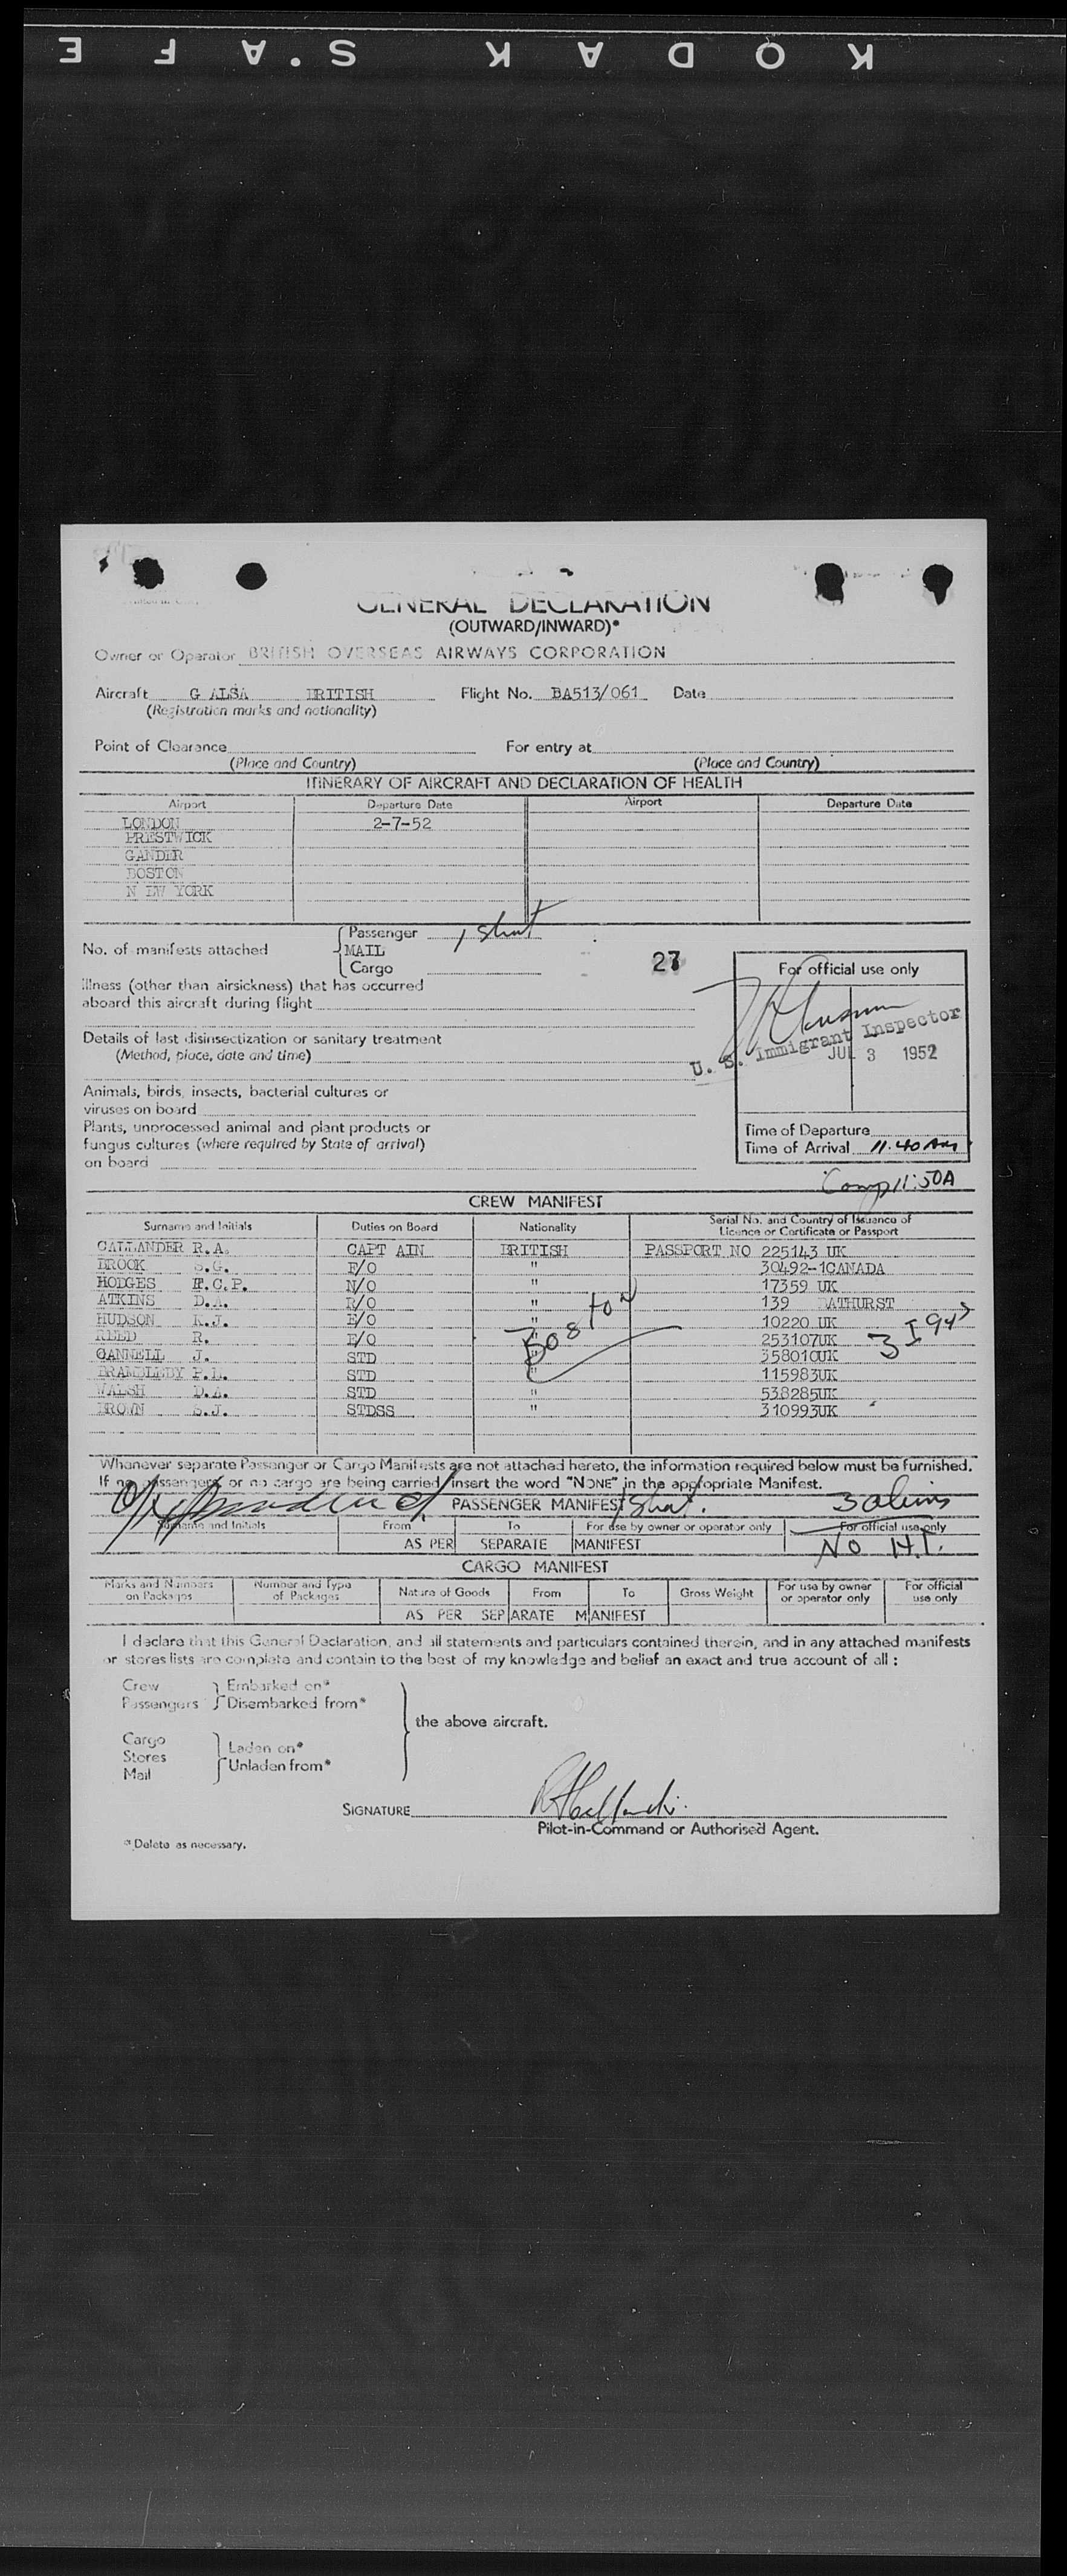 KODAK SAFE
GENERAL DECLARATION
(OUTWARD/INWARD)*
Owner or Operator BRITISH OVERSEAS AIRWAYS CORPORATION
Aircraft G ALSA BRITISH Flight No. BA513/061 Date
(Registration marks and nationality)
Point of Clearance For entry at
(Place and Country) (Place and Country)
ITINERARY OF AIRCRAFT AND DECLARATION OF HEALTH
Airport Departure Date Airport Departure Date
LONDON 2-7-52
PRESTWICK
GANDER
BOSTON
N EW YORK
No. of manifests attached
Passenger 1 Sheet
MAIL
Cargo
27
For official use only
Illness (other than airsickness) that has occurred
aboard this aircraft during flight
U. S. Immigrant Inspector
JUL 3 1952
Details of last disinsectization or sanitary treatment
(Method, place, date and time)
Animals, birds, insects, bacterial cultures or
viruses on board
Plants, unprocessed animal and plant products or
fungus cultures (where required by State of arrival)
on board
Time of Departure
Time of Arrival 11.40 Am
Comp 11:50A
CREW MANIFEST
Surname and Initials Duties on Board Nationality Serial No. and Country of Issuance of
Licence or Certificate or Passport
CALLANDER R.A. CAPT AIN BRITISH PASSPORT NO 225143 UK
BROOK S.G. F/O " 30492-1CANADA
HODGES F.C.P. N/O " 17359 UK
ATKINS D.A. R/O " 139 BATHURST
HUDSON K.J. E/O " 10220 UK
REED R. E/O " 253107UK
GANNELL J. STD " 358010UK
BRAMBLEBY P.L. STD " 115983UK
WALSH D.A. STD " 538285UK
BROWN S.J. STDSS " 310993UK
Boston
3 I 94s
Whenever separate Passenger or Cargo Manifests are not attached hereto, the information required below must be furnished.
If no passengers or no cargo are being carried insert the word "NONE" in the appropriate Manifest.
PASSENGER MANIFEST 1 Sheet. 3 aliens
Surname and Initials From To For use by owner or operator only For official use only
AS PER SEPARATE MANIFEST No H.T.
CARGO MANIFEST
Marks and Numbers on Packages Number and Type of Packages Nature of Goods From To Gross Weight For use by owner or operator only For official use only
AS PER SEPARATE MANIFEST
I declare that this General Declaration, and all statements and particulars contained therein, and in any attached manifests
or stores lists are complete and contain to the best of my knowledge and belief an exact and true account of all :
Crew Embarked on*
Passengers Disembarked from*
the above aircraft.
Cargo
Stores Laden on*
Mail Unladen from*
SIGNATURE
Pilot-in-Command or Authorised Agent.
* Delete as necessary.